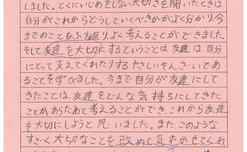 しました。とくにいじめをしない大切さを聞いたときは
自分がこれからどうしていくべきかがよく分かり今
までのこともふり返りよく考えることができました。
そして友達を大切にするということは友達は、自分
にとって支えてくれたりするたいせつなそんざいである
ことを学びました。今まで自分が友達にして
きたことは友達をどんな気持ちにしてきた
ことかあらためて考えることができ、これから友達
を大切にしようと思いました。また、このような
すごく大切なことを改めて気をかせてくれ